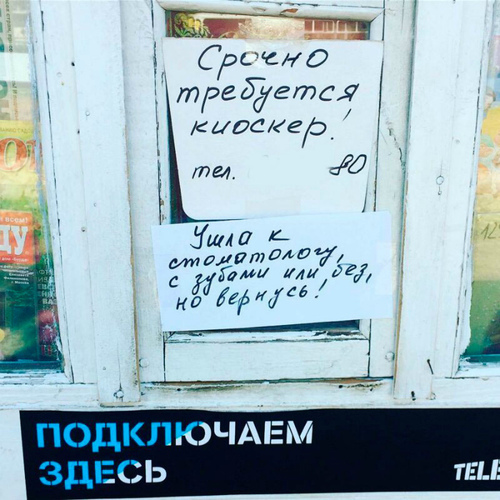 Срочно
требуется
киоскер!
тел. 80
Ушла к
стоматологу,
с зубами или без,
но вернусь!
ДУ
ПОДКЛЮЧАЕМ
ЗДЕСЬ
TELE